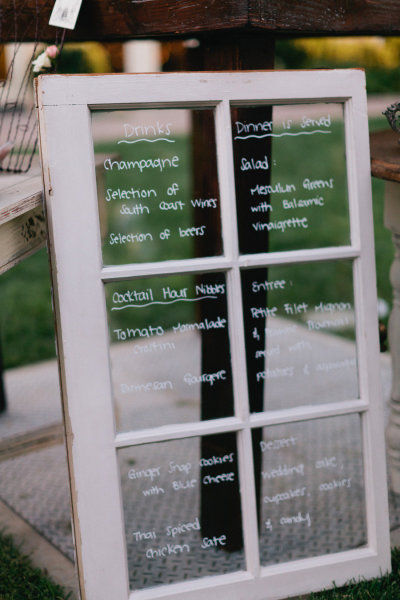 Drinks
champagne
Selection of
South Coast Wines
Selection of beers
Dinner is Served
Salad:
Mesculum Greens
with Balsamic
Vinaigrette
Cocktail Hour Nibbles
Tomato Marmalade
Crostini
Parmesan Gougere
Entree:
Petite Filet Mignon
& Prawn
served with
potatoes &
Ginger Snap cookies
with Blue cheese
Thai Spiced
chicken Sate
Dessert
wedding cake,
cupcakes, cookies
& candy